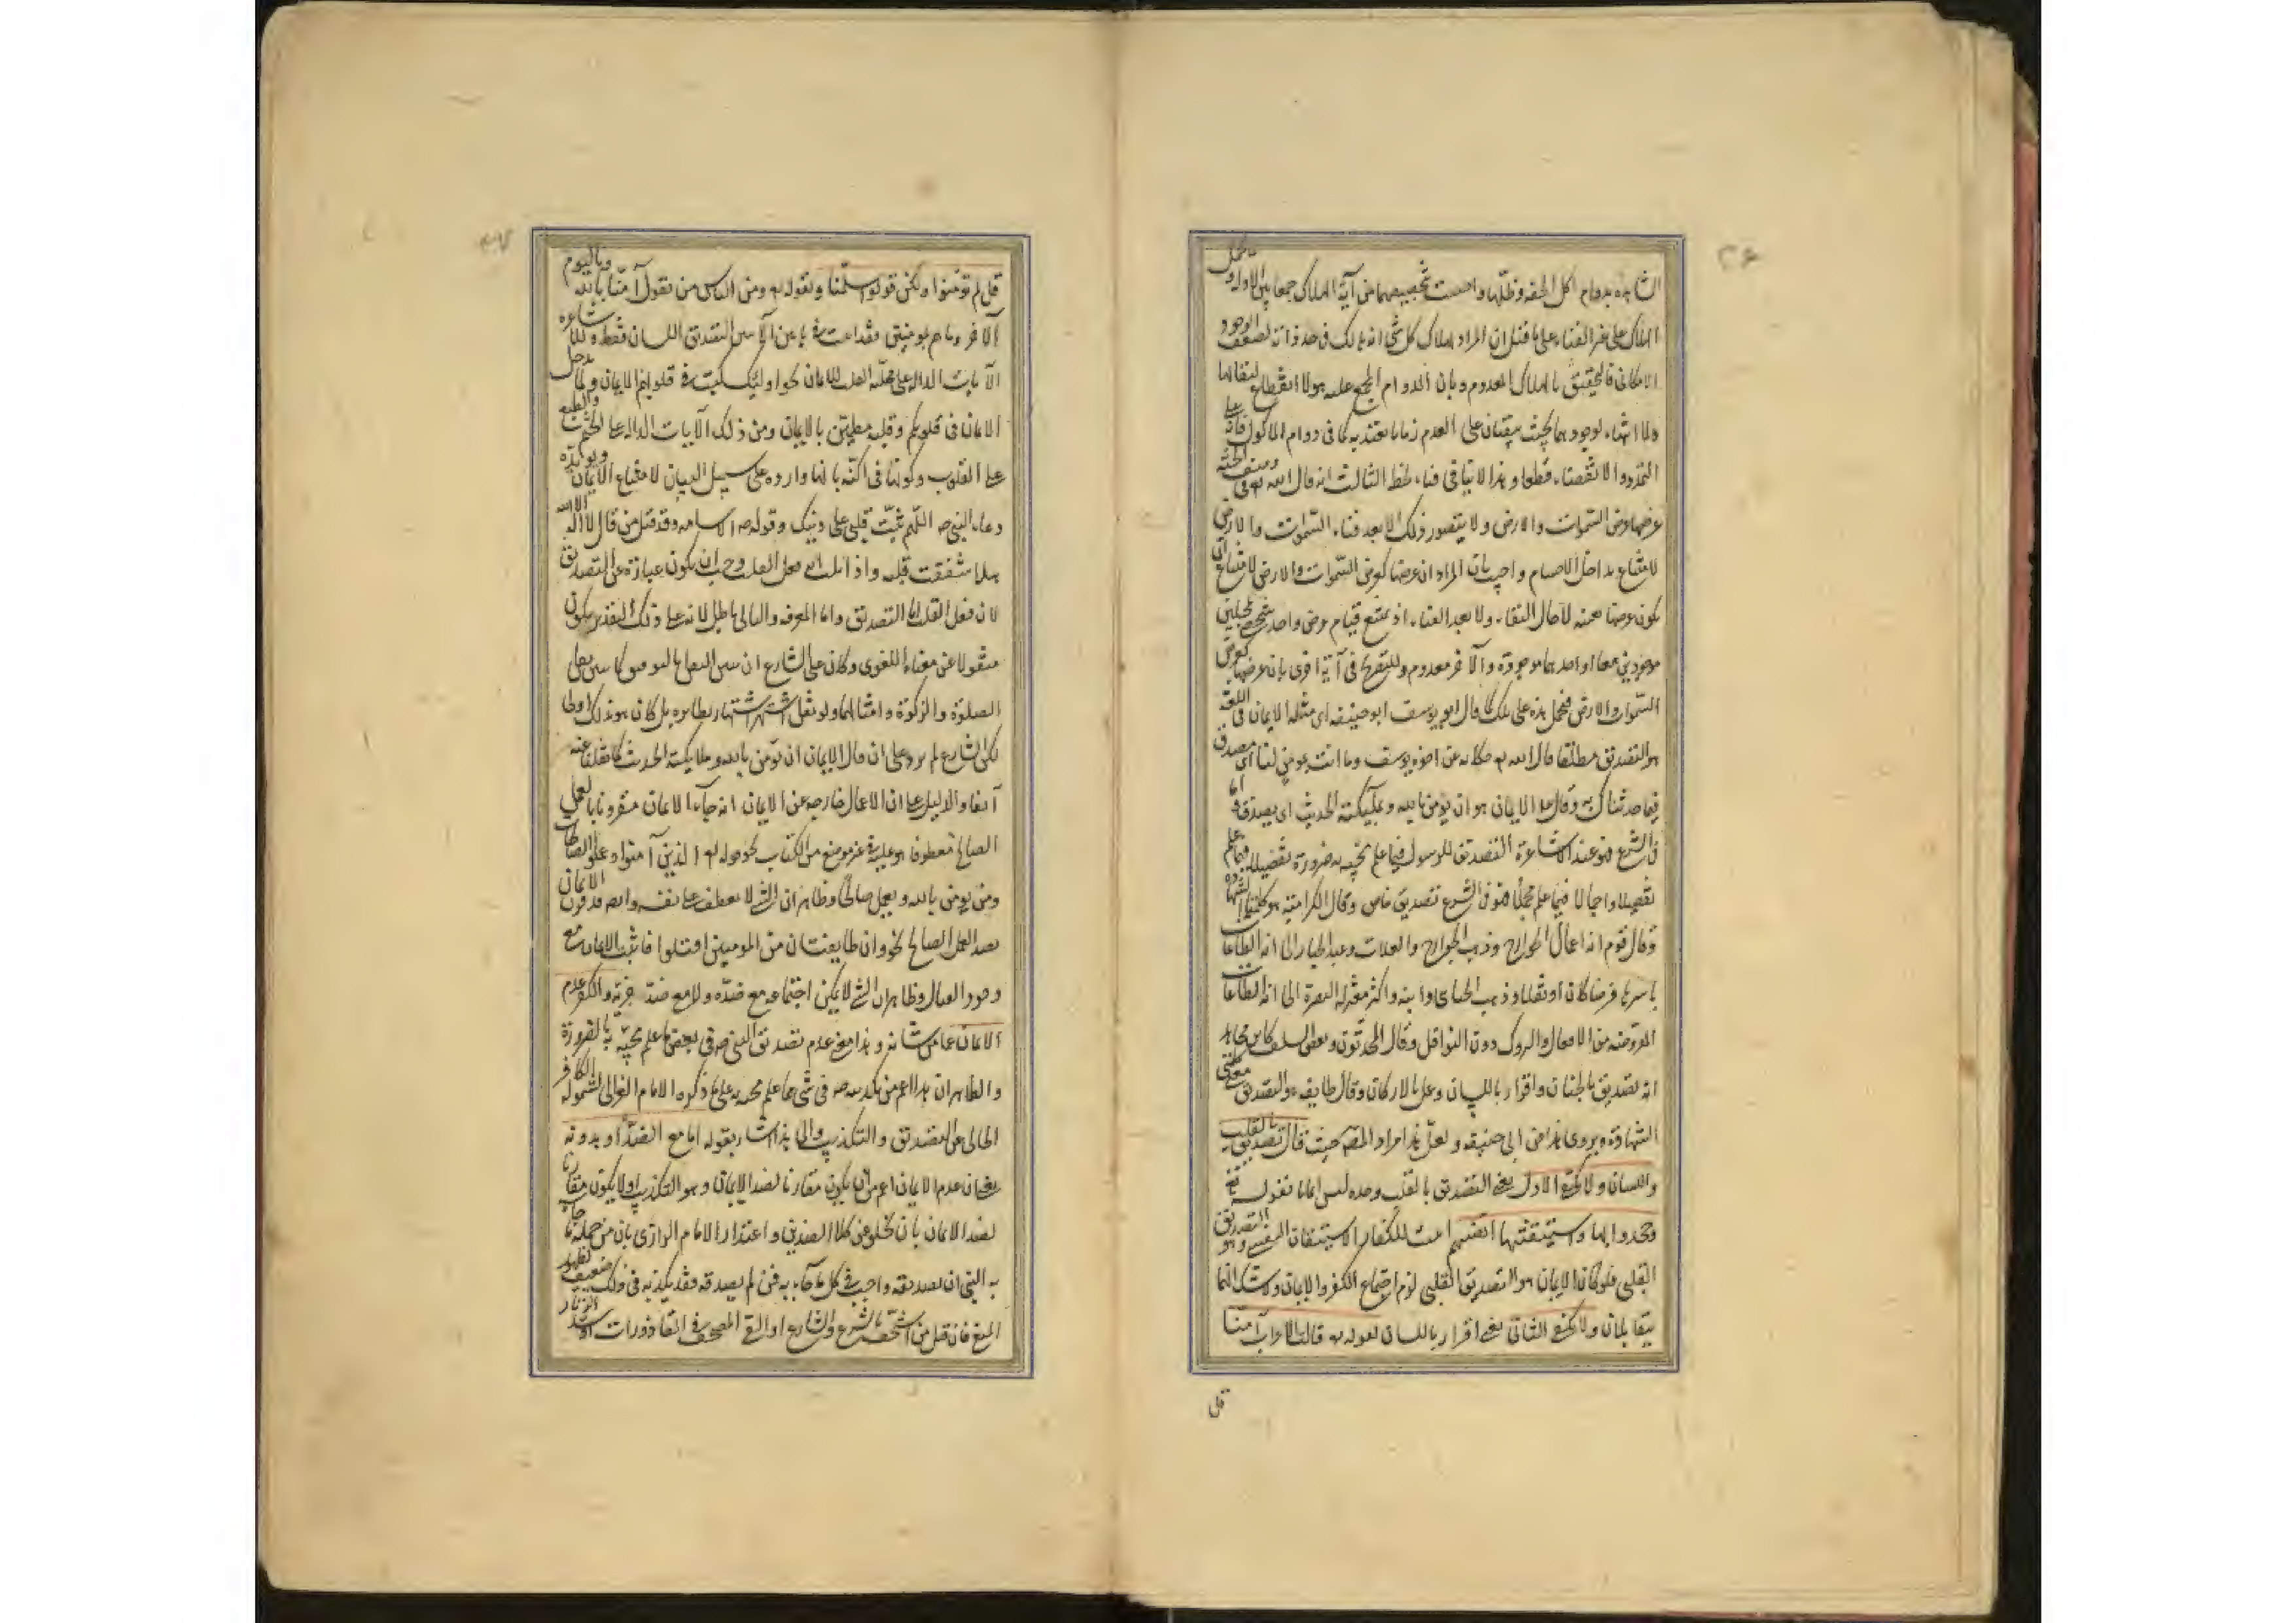 الشاهدة بدوام اكل الجنة وظلها واجيب بتخصيصهما من آية الهلاك جمعا بين الادلة و بحمل
الهلاك على غير الفناء على ما قيل ان المراد بهلاك كل شئ انه هالك فى حد ذاته لضعف الوجود
الامكانى فالتحق بالهالك المعدوم وبان الدوام المجمع عليه هو لا انقطاع لبقائها
ولا انتهاء لوجودهما بحيث يبقيان على العدم زمانا يعتد به كما فى دوام الماكول فانه على
التجدد والانقضاء قطعا وهذا لا ينافى فناء لحظة الثالث انه قال الله تع فى وصف الجنة
عرضها عرض السموات والارض ولا يتصور ذلك الا بعد فناء السموات والارض
لامتناع تداخل الاجسام واجيب بان المراد ان عرضها كعرض السموات والارض لامتناع ان
يكون عرضها عينه لا حال البقاء ولا بعد الفناء اذ يمتنع قيام عرض واحد شخصى بمحلين
موجودين معا او احدهما موجود والآخر معدوم وللتصريح فى آية اخرى بان عرضها كعرض
السموات والارض فيحمل هذه على تلك كما قال ابو يوسف ابو حنيفه اى مثله الايمان فى اللغة
هو التصديق مطلقا قال الله تع حكاية عن اخوة يوسف وما انت بمومن لنا اى مصدق
فيما حدثناك به وقال عم الايمان هو ان يؤمن بالله وملئكته الحديث اى يصدق واما
فى الشرع فهو عند الاشاعرة التصديق للرسول فيما علم مجيه به ضرورة تفصيلا فيما علم
تفصيلا واجمالا فيما علم مجملا فهو فى الشرع تصديق خاص وقال الكرامية هو كلمتا الشهادة
وقال قوم انه اعمال الجوارح وذهب الخوارج والعلاف وعبد الجبار الى انه الطاعات
باسرها فرضا كان او نفلا وذهب الجبائى وابنه واكثر معتزلة البصرة الى انه الطاعات
المفروضه من الافعال والتروك دون النوافل وقال المحدثون وبعض السلف كابن مجاهد
انه تصديق بالجنان واقرار باللسان وعمل بالاركان وقال طايفه هو التصديق مع كلمتى
الشهادة ويروى هذا عن ابى حنيفه ولعل هذا مراد المصه حيث قال تصديق بالقلب
واللسان ولا يكفى الاول يعنى التصديق بالقلب وحده ليس ايمانا لقوله تع
وجحدوا بها واستيقنتها انفسهم اثبت للكفار الاستيقان النفسى وهو التصديق
القلبى فلو كان الايمان هو التصديق القلبى لزم اجتماع الكفر والايمان ولا شك انهما
يتقابلان ولا يكفى الثانى يعنى اقرار باللسان لقوله تع قالت الاعراب آمنا
قل
قل لم تؤمنوا ولكن قولوا اسلمنا ولقوله تع ومن الناس من يقول آمنا بالله وباليوم
الآخر وما هم بمومنين فقد اثبت فى هاتين الآيتين التصديق اللسان فقط وللاشاعرة
الآيات الدالة على محلية القلب للايمان نحو اولئك كتب فى قلوبهم الايمان ولما يدخل
الايمان فى قلوبكم وقلبه مطمئن بالايمان ومن ذلك الآيات الدالة على الختم والطبع
على القلوب وكونها فى اكنة بانها وارده على سبيل البيان لامتناع الايمان ويؤيده
دعاء النبى صه اللهم ثبت قلبى على دينك وقوله صه لاسامه وقد قتل من قال لا اله الا الله
هلا شققت قلبه واذا ثبت انه فعل القلب وجب ان يكون عبارة عن التصديق
لان فعل القلب اما التصديق واما المعرفه والثانى باطل لانه على ذلك التقدير يكون
منقولا عن معناه اللغوى وكان على الشارع ان يبين النقل بالتوقيف كما بين نقل
الصلوة والزكوة وامثالهما ولو نقل اشتهر اشتهار نظايره بل كان هو بذلك اولى
لكن الشارع لم يزد على ان قال الايمان ان تؤمن بالله وملايكته الحديث كما نقلناه عنه
آنفا والدليل على ان الاعمال خارجه عن الايمان انه جاء الايمان مقرونا بالعمل
الصالح معطوفا هو عليه فى غير موضع من الكتاب نحو قوله تع الذين آمنوا وعملوا الصالحات
ومن يومن بالله ويعمل صالحا وظاهر ان الشئ لا يعطف على نفسه وايضا قد قرن الايمان
بضد العمل الصالح نحو وان طايفتان من المومنين اقتتلوا فاثبت الايمان مع
وجود القتال وظاهر ان الشئ لا يمكن اجتماعه مع ضده ولا مع ضد جزئه والكفر عدم
الايمان عما من شانه وهذا معنى عدم تصديق النبى صه فى بعض ما علم مجيه به بالضرورة
والظاهر ان هذا اعم من تكذيبه صه فى شئ مما علم مجيه به على ما ذكره الامام الغزالى لشموله الكافر
الخالى عن التصديق والتكذيب والى هذا اشار بقوله اما مع الضد او بدونه
يعنى ان عدم الايمان اعم من ان يكون مقارنا لضد الايمان وهو التكذيب او لا يكون مقارنا
لضد الايمان بان يخلو عن كلا الضدين واعتذار الامام الرازى بان من جملة ما جاء
به النبى ان تصديقه واجب فى كل ما جاء به فمن لم يصدقه فقد كذبه فى ذلك ضعيف لظهور
المنع فان قيل من استخف بالشرع والشارع او القى المصحف فى القاذورات او شد الزنار